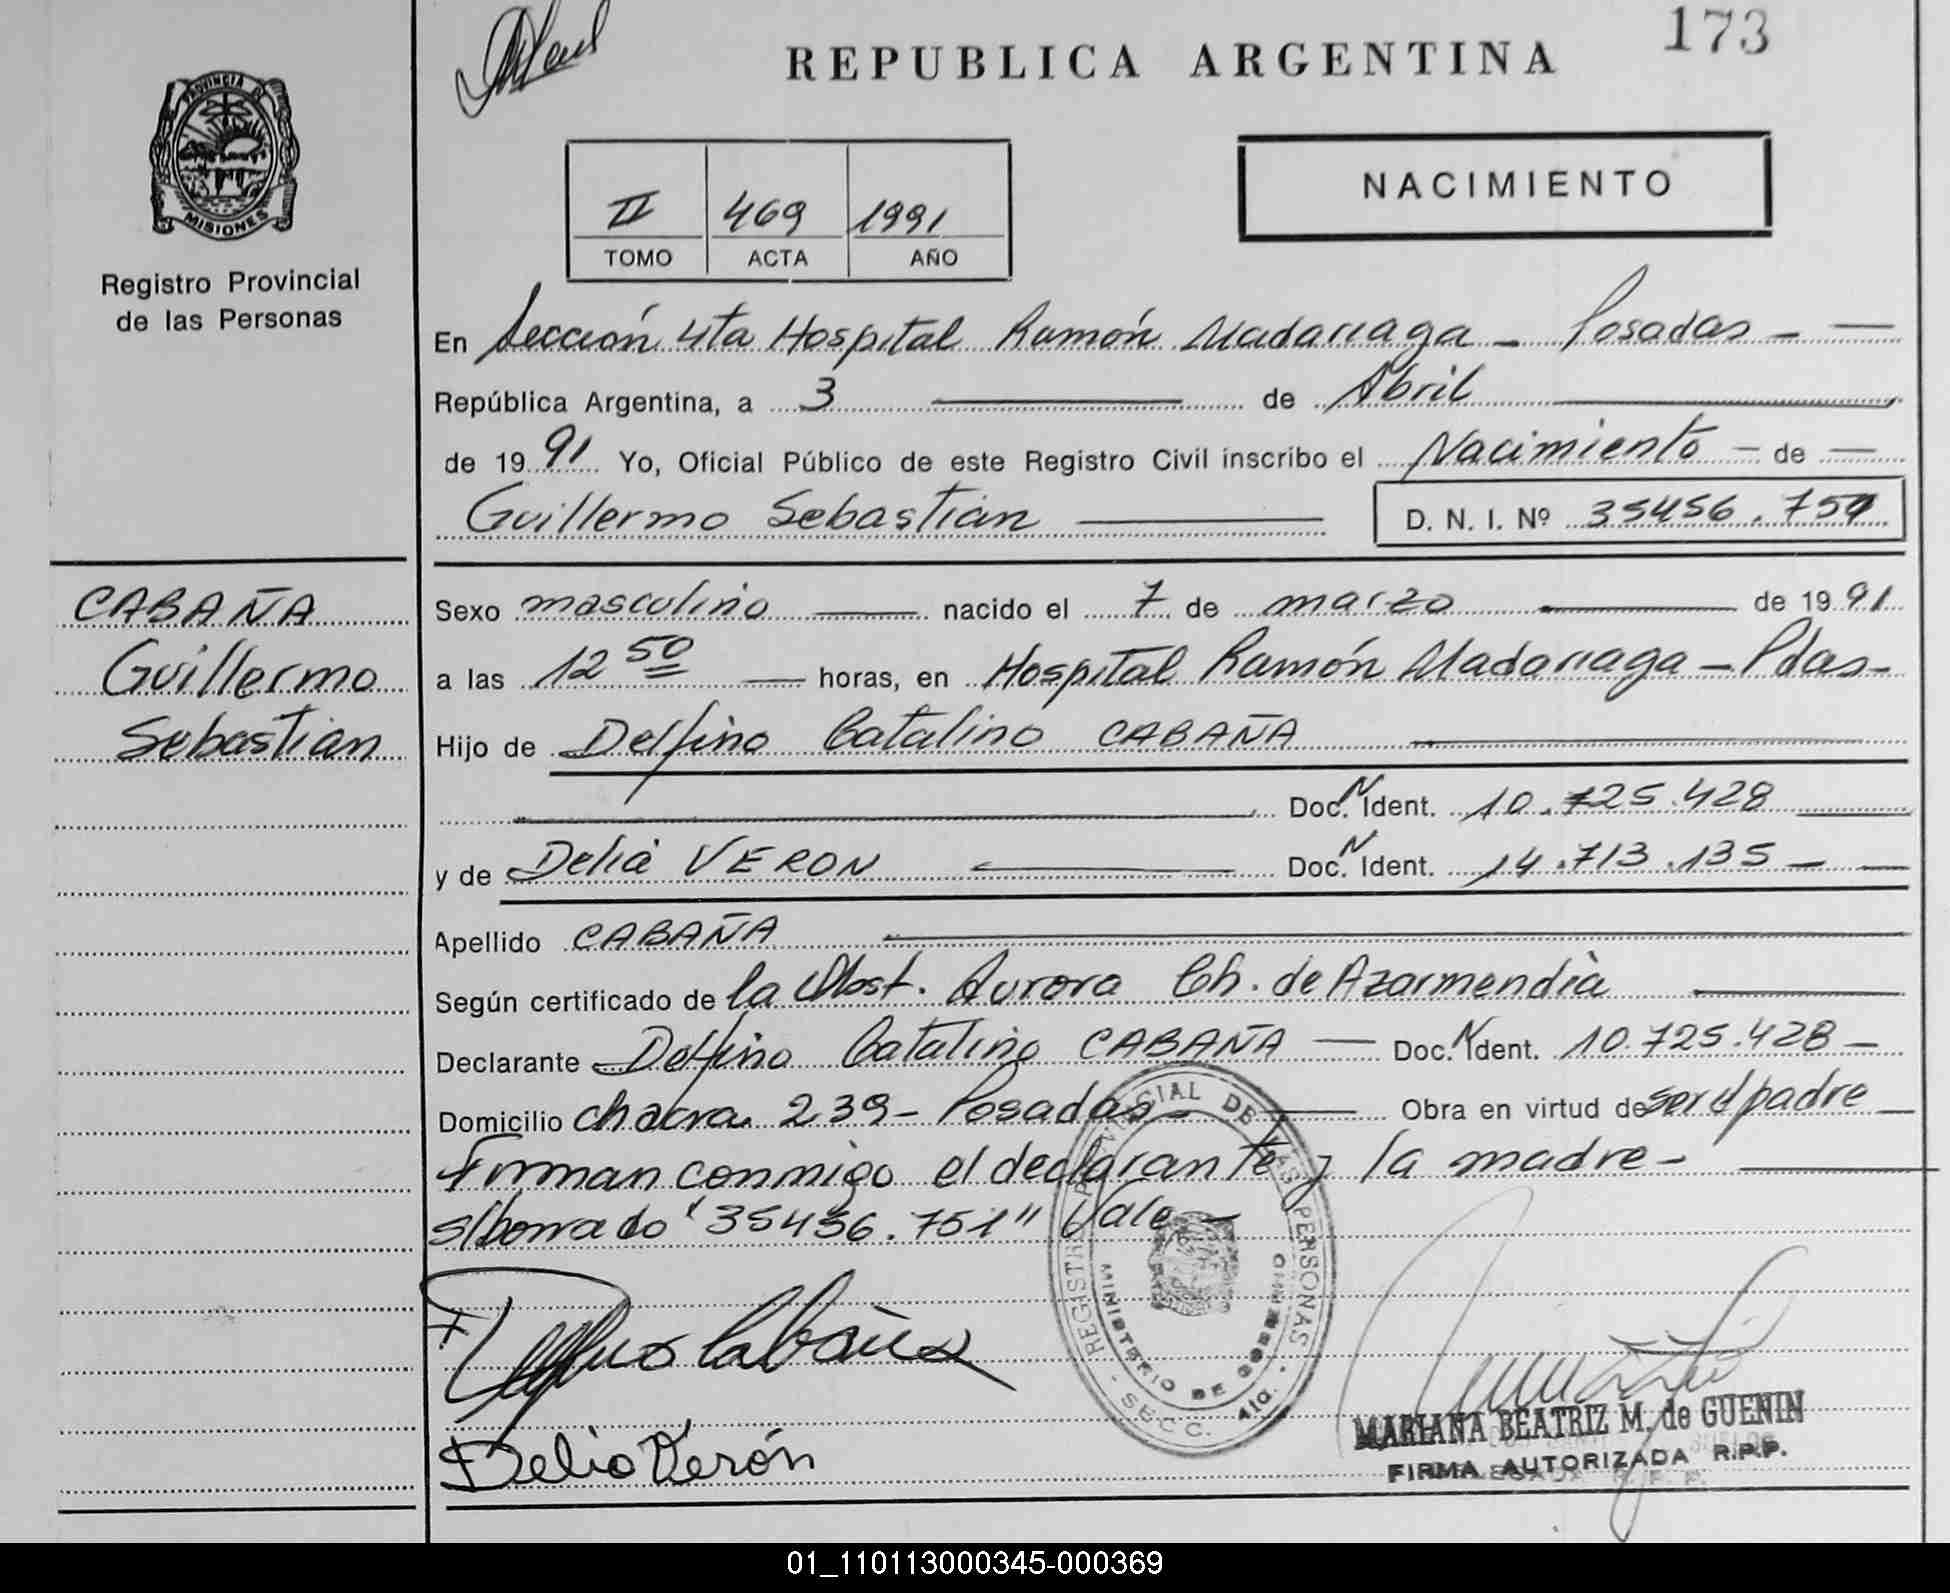 173
REPUBLICA ARGENTINA
PROVINCIA DE
MISIONES
Registro Provincial
de las Personas
II 469 1991
TOMO ACTA AÑO
NACIMIENTO
En Sección 4ta Hospital Ramón Madariaga - Posadas -
República Argentina, a 3 de Abril
de 1991 Yo, Oficial Público de este Registro Civil inscribo el Nacimiento - de
Guillermo Sebastian D. N. I. Nº 35456.751
CABAÑA
Guillermo
Sebastian
Sexo masculino nacido el 7 de marzo de 1991
a las 12 50 horas, en Hospital Ramón Madariaga - Pdas-
Hijo de Delfino Catalino CABAÑA
Doc. N Ident. 10.725.428
y de Delia VERON Doc. N Ident. 14.713.135 -
Apellido CABAÑA
Según certificado de la Obst. Aurora Ch. de Azarmendia
Declarante Delfino Catalino CABAÑA - Doc. N Ident. 10.725.428 -
Domicilio chacra 239 - Posadas - Obra en virtud de ser el padre
Firman conmigo el declarante y la madre -
s/borrado "35456.751" Vale -
REGISTRO PROVINCIAL DE LAS PERSONAS
MINISTERIO DE GOBIERNO
SECC. 4ta.
Delfino Cabaña
Delia Verón
MARIANA BEATRIZ M. de GUENIN
FIRMA AUTORIZADA R.P.P.
01_110113000345-000369